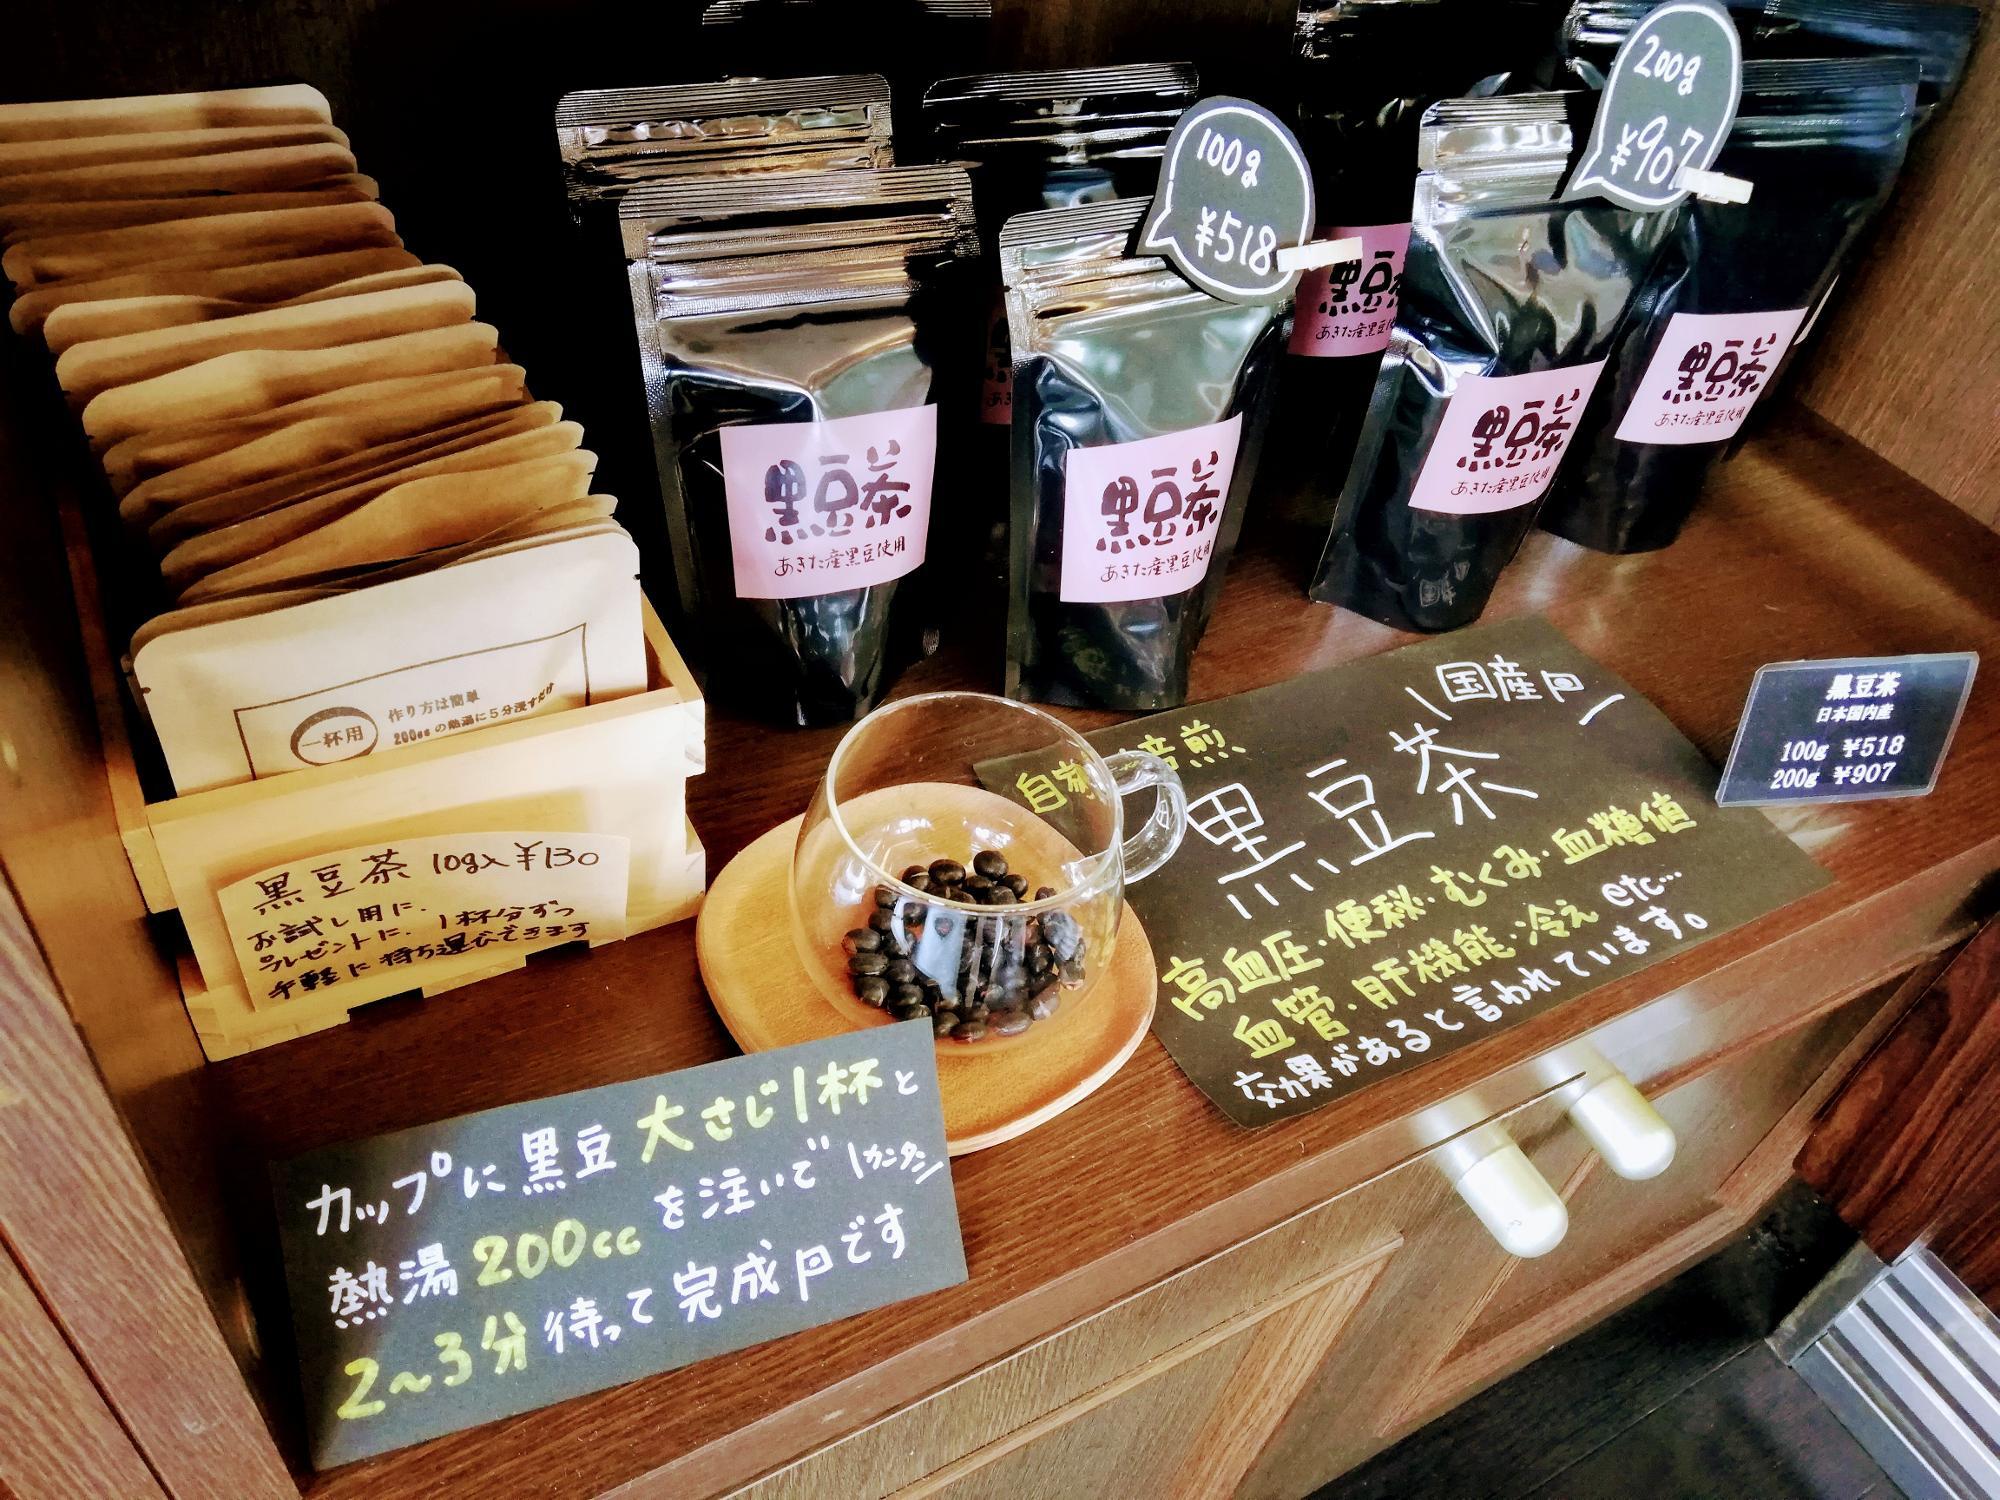 100g
¥518
200g
¥907
黒豆茶
あきた産黒豆使用
黒豆茶
あきた産黒豆使用
黒豆茶
あきた産黒豆使用
黒豆茶
あきた産黒豆使用
黒豆
あきた産黒豆使
一杯用
作り方は簡単
200ccの熱湯に5分浸すだけ
黒豆茶 10g入¥130
お試し用に、
プレゼントに、1杯分ずつ
手軽に持ち運びできます
国産
自家焙煎
黒豆茶
高血圧・便秘・むくみ・血糖値
血管・肝機能・冷え etc…
効果があると言われています。
黒豆茶
日本国内産
100g ¥518
200g ¥907
カップに黒豆大さじ1杯と
熱湯200ccを注いで カンタン
2~3分待って完成です